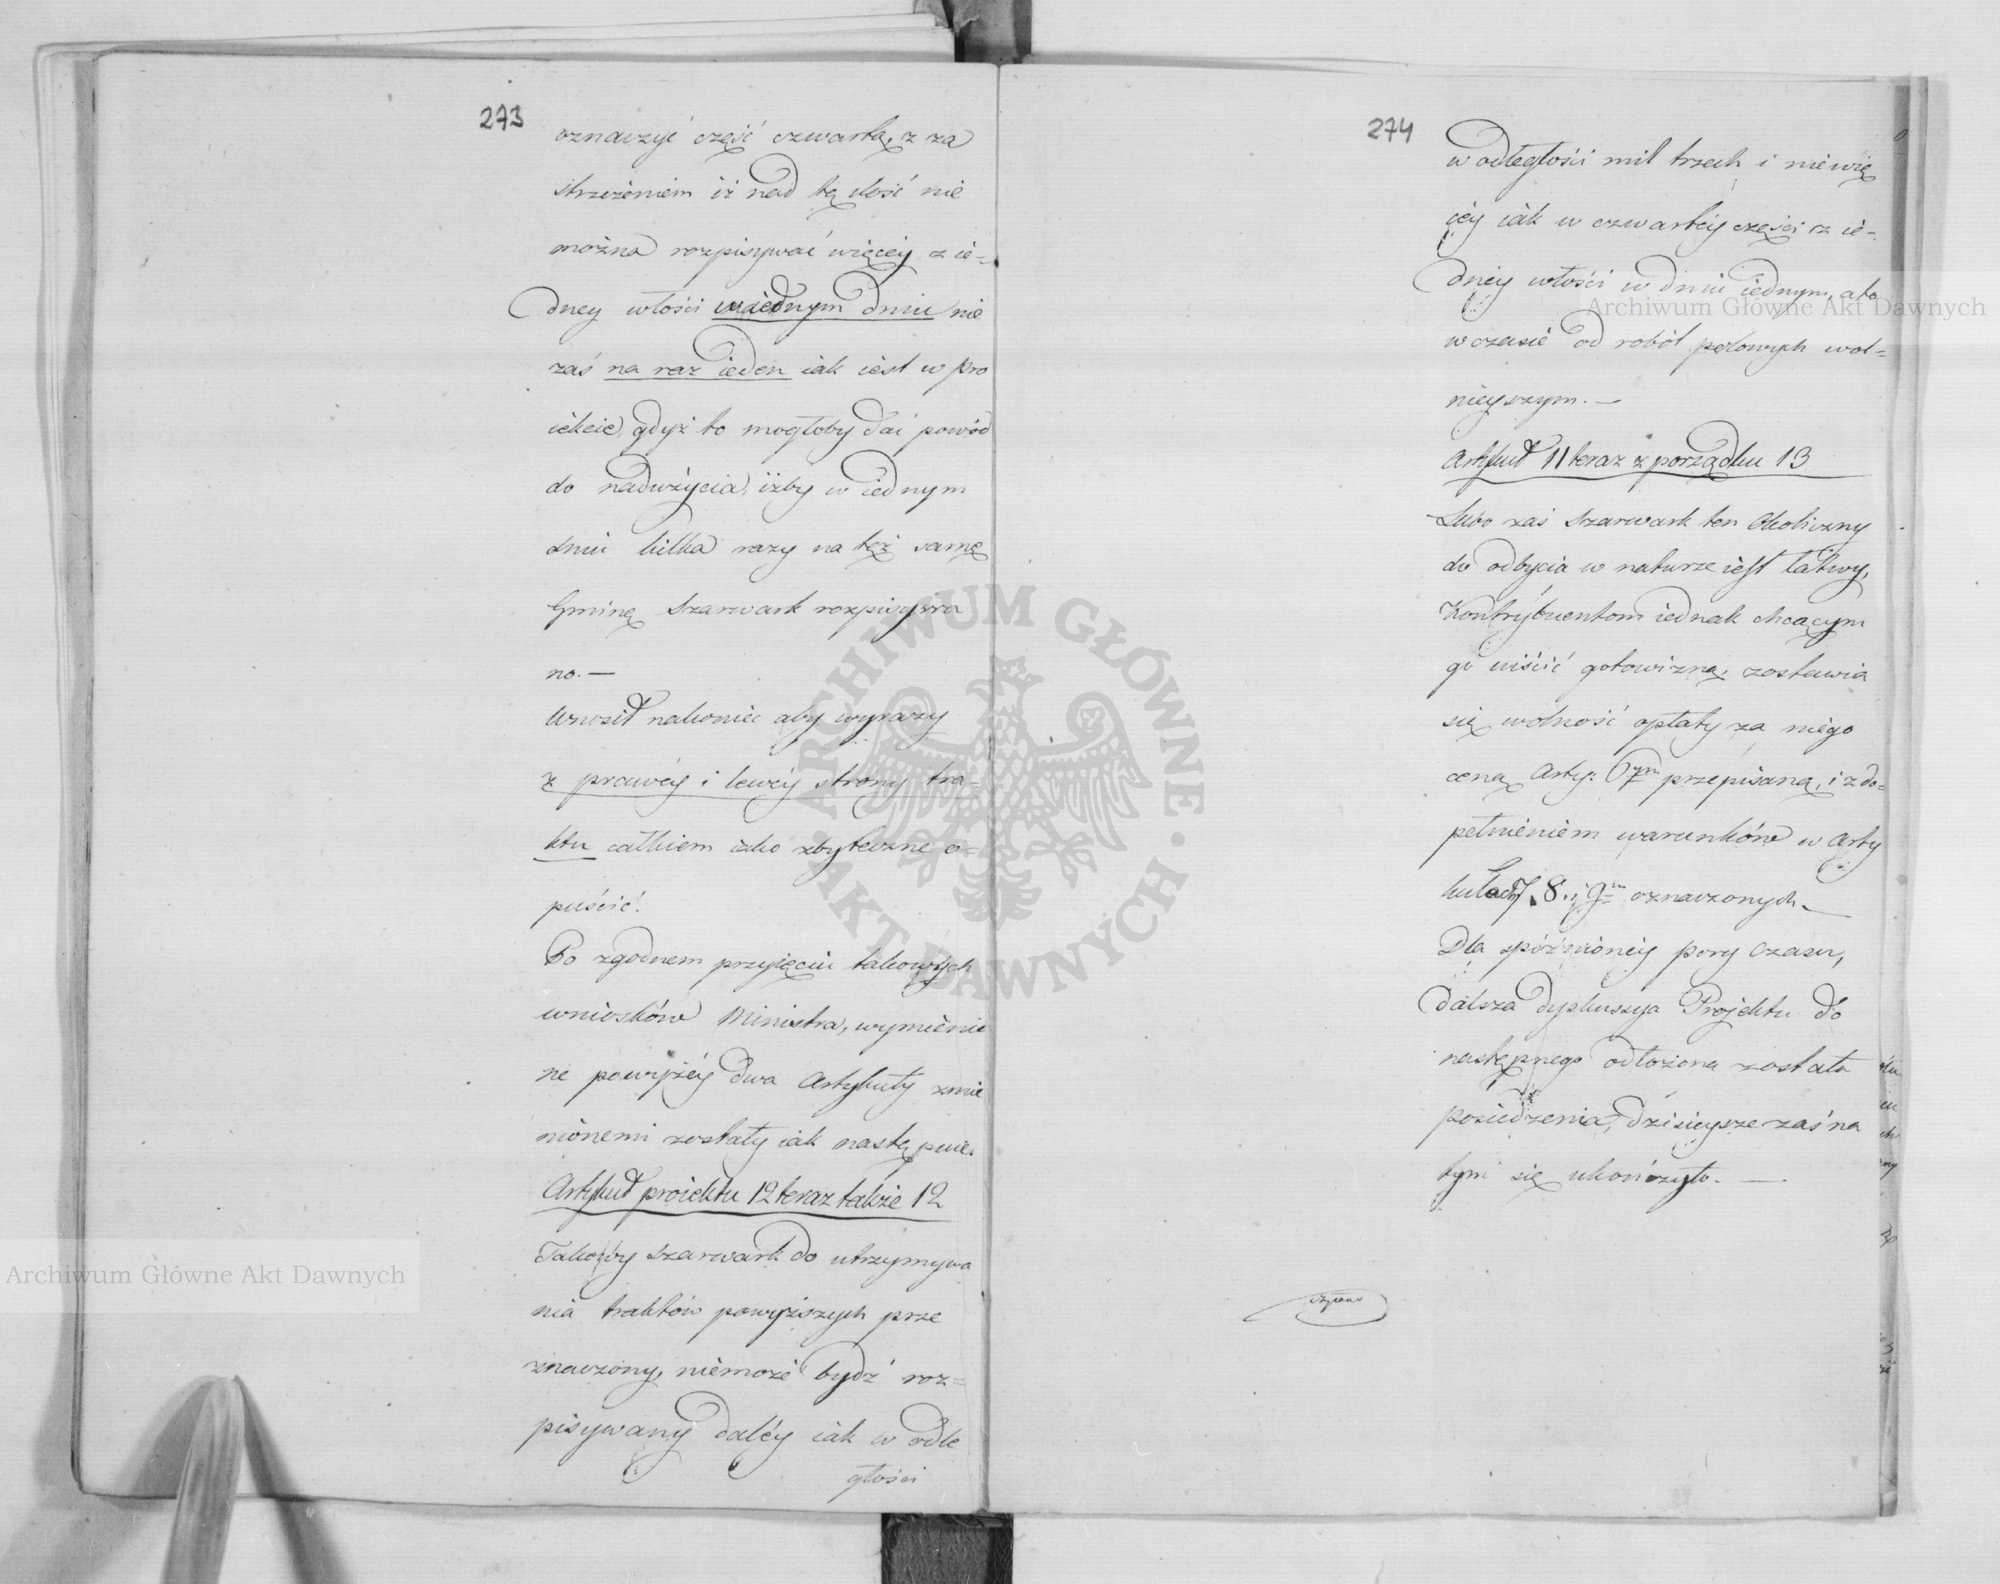 273
oznaczyć część czwartą, z za
strzeżeniem iż nad tę ilość nie
można rozpisywać więcéy z ie=
dney włości w iednym dniu nie
zaś na raz ieden iak iest w pro
iekcie, gdyż to mogłoby dać powód
do nadużycia, iżby w iednym
dniu kilka razy na téż samę
Gminę Szarwark rozpisywa
no. —
Wnosił nakoniec aby wyrazy
z prawéy i lewéy strony tra=
ktu całkiem iako zbyteczne o=
puścić.
Po zgodnem przyięciu takowych
wniosków Ministra, wymienio
ne powyżéy dwa Artykuły zmie
nionemi zostały iak następuie.
Artykuł proiektu 12 teraz także 12
Takowy szarwark do utrzymywa
nia traktów powyższych prze
znaczony, niemoże bydź roz=
pisywany daléy iak w odle
głości
274
w odległości mil trzech i niewię
céy iak w czwartéy części z ie=
dnéy włości w dniu iednym, a to
w czasie od robót polowych wol=
nieyszym. —
Artykuł 11 teraz z porządku 13
Lubo zaś Szarwark ten Okoliczny
do odbycia w naturze iest łatwy,
Kontrybuentom iednak chcącym
go uiścić gotowizną, zostawia
się wolność opłaty za niego
ceną Arty: 6ym przepisaną, i z do=
pełnieniem warunków w Arty
kułach 7. 8. i 9m oznaczonych. —
Dla spóźnionéy pory Czasu,
dalsza dyskussya Projektu do
następnego odłożona została
posiedzenia, dzisieysze zaś na
tym się ukończyło. —
czytano
Archiwum Główne Akt Dawnych
Archiwum Główne Akt Dawnych
ARCHIWUM GŁÓWNE · AKT DAWNYCH ·